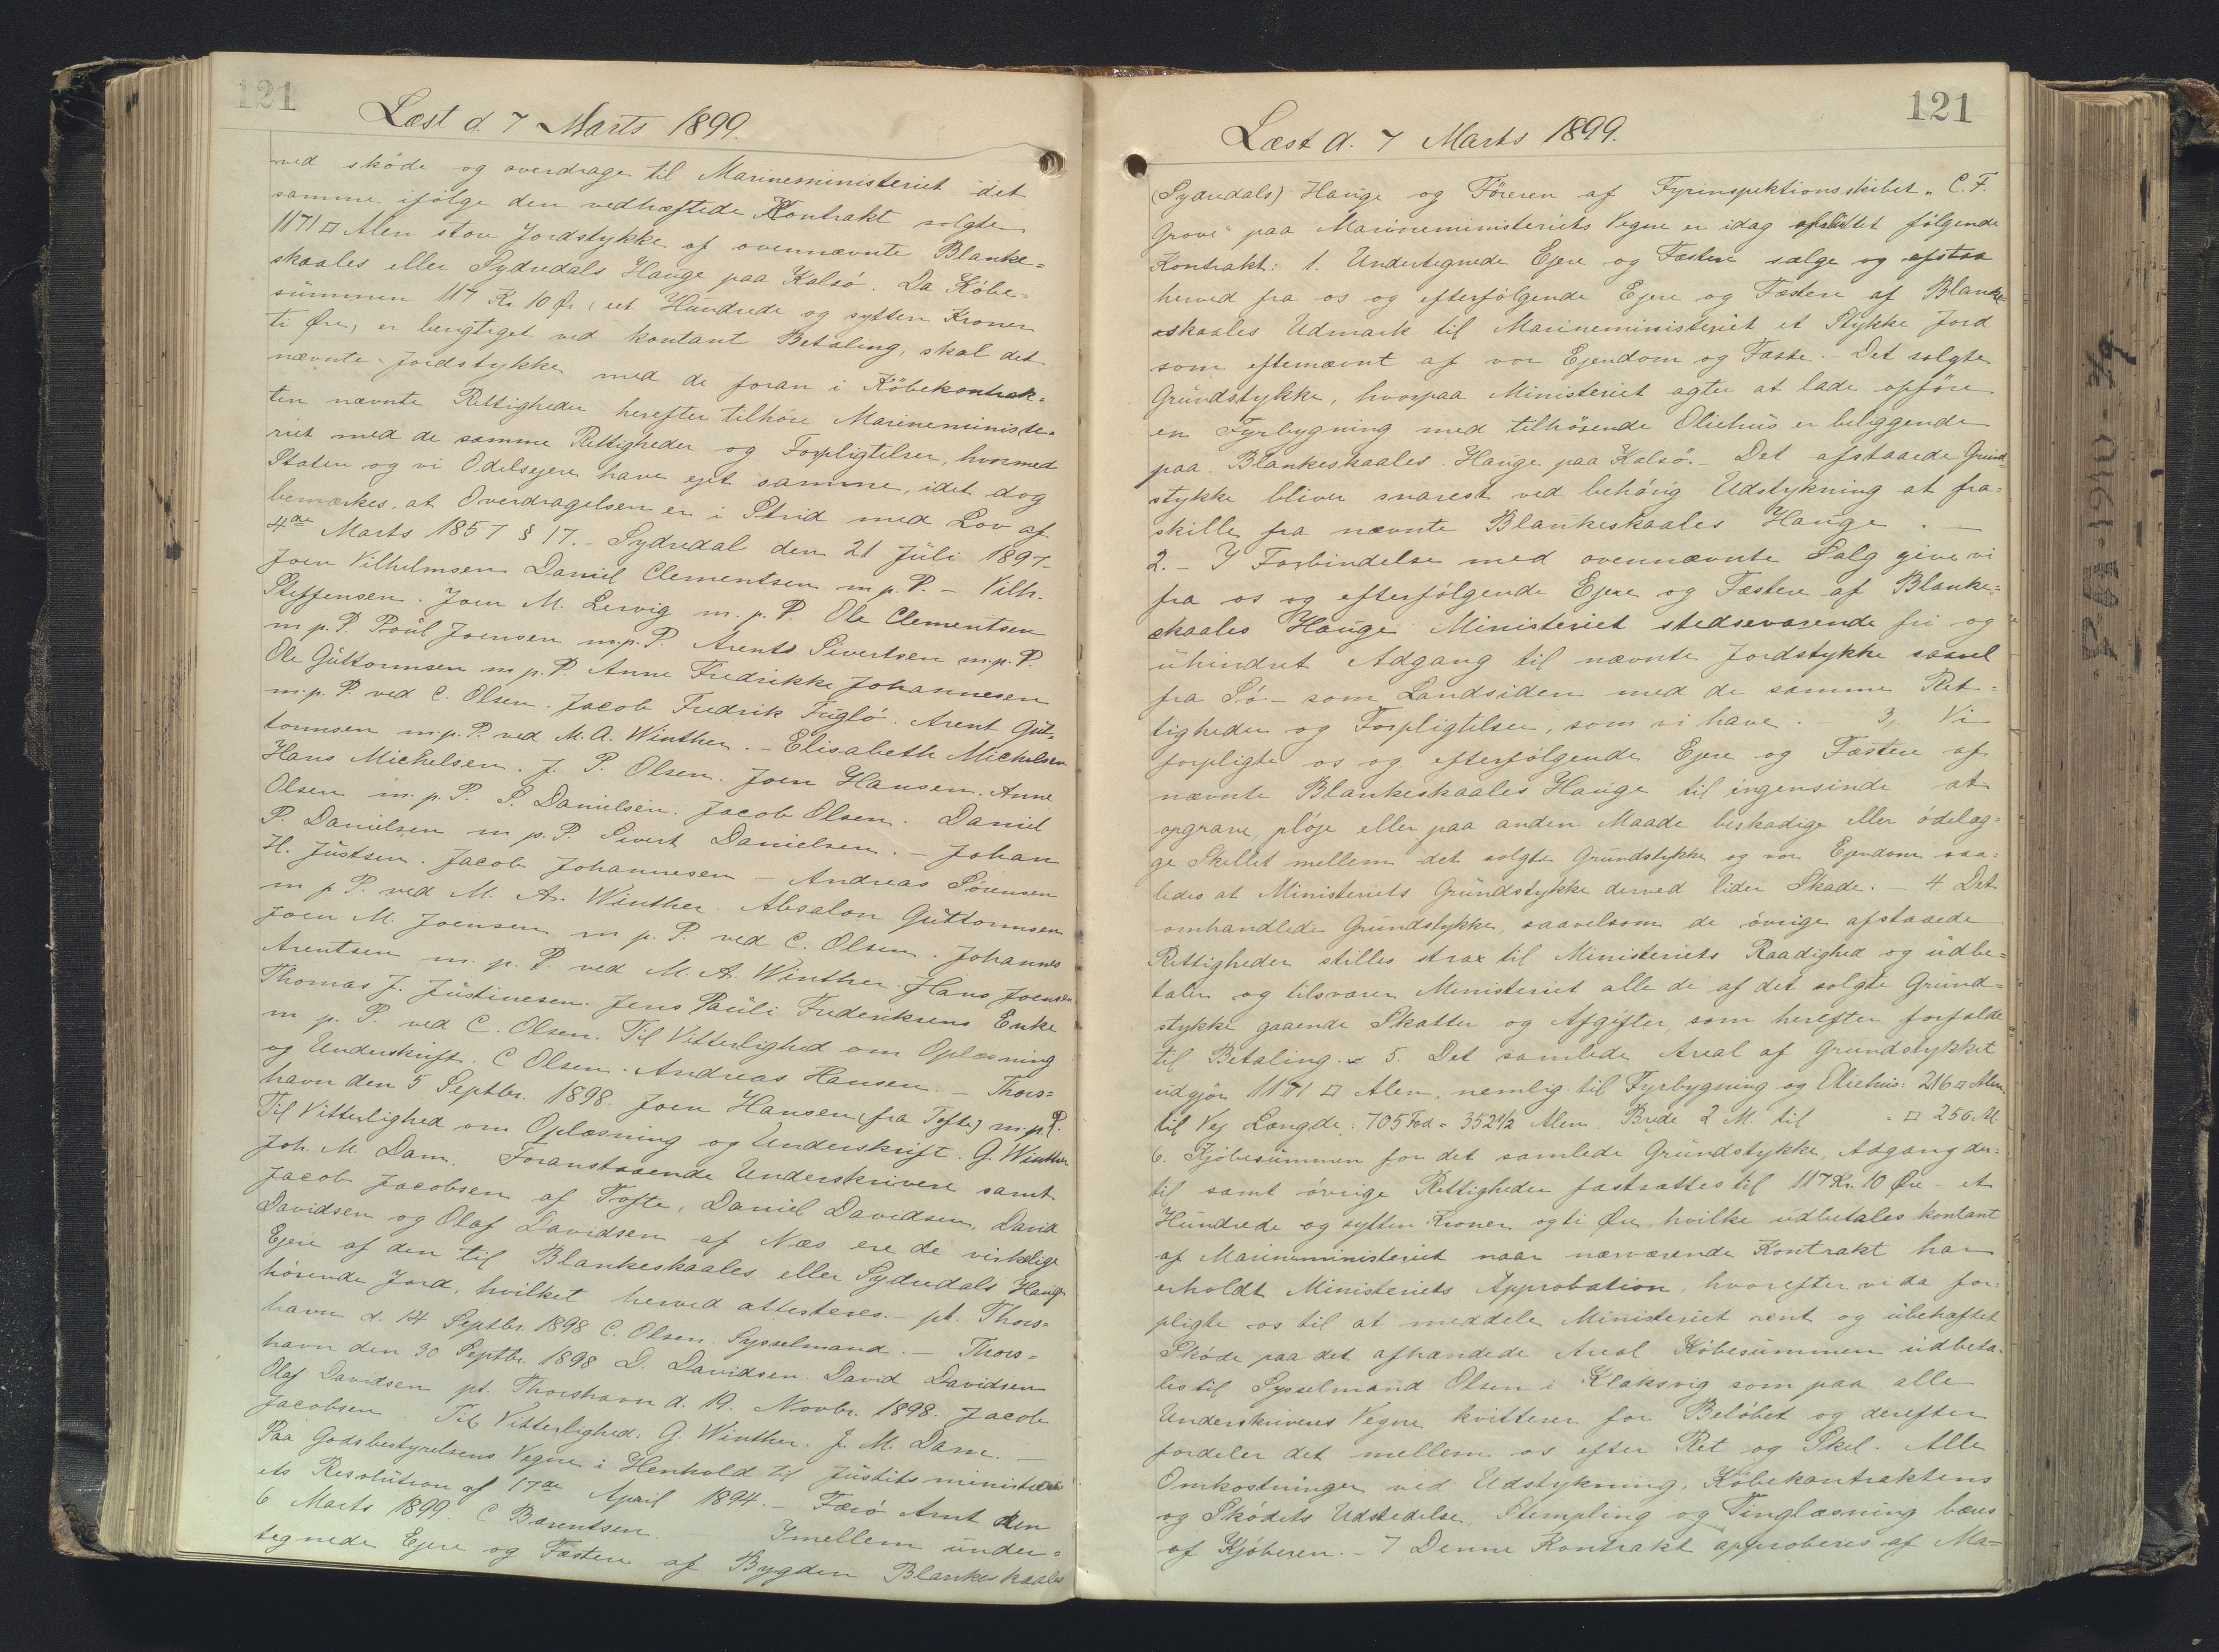 121
Læst d. 7 Marts 1899.
ved skøde og overdrage til Marineministeriet det
samme ifølge den vedhæftede Kontrakt solgte
1171 □ Alen store Jordstykke af ovennævnte Blanke-
skaales eller Sydredals Hauge paa Kalsø. Da Købe-
summen 117 Kr. 10 Ør, eet Hundrede og sytten Kroner
ti Øre, er berigtiget ved kontant Betaling, skal det
nævnte Jordstykke med de foran i Købekontrak-
ten nævnte Rettigheder herefter tilhøre Marineministe-
riet med de samme Rettigheder og Forpligtelser, hvormed
Staten og vi Odelsejere have ejet samme, idet dog
bemærkes, at Overdragelsen er i Strid med Lov af
4de Marts 1857 § 17. - Sydredal den 21 Juli 1897 -
Joen Vilhelmsen Daniel Clementsen m. p. P. - Vilh.
Steffensen. Joen M. Lervig m. p. P. Ole Clementsen
m p. P. Poul Joensen m. p. P. Arents Sivertsen m. p. P.
Ole Guttormsen m p. P. Anne Fredrikke Johannesen
m. p. P. ved C. Olsen. Jacob Fredrik Fuglø. Arent Gut-
tormsen m. p. P. ved M. A. Winther. - Elisabeth Michelsen
Hans Michelsen. J. P. Olsen. Joen Hansen. Anne
Olsen m. p. P. S. Danielsen. Jacob Olsen. Daniel
P. Danielsen m p. P. Sivert Danielsen. - Johan
H. Justsen. Jacob Johannesen - Andreas Sørensen
m p P. ved M. A. Winther. Absalon Guttormsen
Joen M. Joensen m p. P. ved C. Olsen. Johannes
Arentsen m. p. P. ved M. A. Winther. Hans Joensen
Thomas J. Justinesen. Jens Pauli Frederiksens Enke
m p. P. ved C. Olsen. Til Vitterlighed om Oplæsning
og Underskrift. C Olsen. Andreas Hansen. - Thors-
havn den 5 Septbr. 1898. Joen Hansen (fra Tofte) m. p. P.
Til Vitterlighed om Oplæsning og Underskrift. G. Winther
Joh. M. Dam. Foranstaaende Underskrivere samt
Jacob Jacobsen af Tofte, Daniel Davidsen, David
Davidsen og Olaf Davidsen af Næs ere de virkelige
Ejere af den til Blankeskaales eller Sydredals Hauge
hørende Jord, hvilket herved attesteres. - pt. Thors-
havn d. 14 Septbr. 1898 C. Olsen. Sysselmand. - Thors-
havn den 30 Septbr. 1898 D. Davidsen. David Davidsen
Olaf Davidsen pt. Thorshavn d. 19. Novbr. 1898. Jacob
Jacobsen. Til Vitterlighed. G. Winther. J. M. Dam. -
Paa Godsbestyrelsens Vegne i Henhold til Justitsministeri-
ets Resolution af 17de April 1894. - Færø Amt den
6 Marts 1899. C Bærentsen. Imellem under-
tegnede Ejere og Fæstere af Bygden Blankeskaales
121
Læst d. 7 Marts 1899.
(Sydredals) Hauge og Føreren af Fyrinspektionsskibet "C. F.
Grove" paa Marineministeriets Vegne er idag afsluttet følgende
Kontrakt: 1. Undertegnede Ejere og Fæstere sælge og afstaa
herved fra os og efterfølgende Ejere og Fæstere af Blanke-
skaales Udmark til Marineministeriet et Stykke Jord
som efternævnt af vor Ejendom og Fæste. - Det solgte
Grundstykke, hvorpaa Ministeriet agter at lade opføre
en Fyrbygning med tilhørende Oliehus er beliggende
paa Blankeskaales Hauge paa Kalsø. - Det afstaaede Grund-
stykke bliver snarest ved behørig Udstykning at fra-
skille fra nævnte Blankeskaales Hauge. -
2. - I Forbindelse med ovennævnte Salg give vi
fra os og efterfølgende Ejere og Fæstere af Blanke-
skaales Hauge Ministeriet stedsevarende fri og
uhindret Adgang til nævnte Jordstykke saavel
fra Sø- som Landsiden med de samme Ret-
tigheder og Forpligtelser, som vi have. 3. Vi
forpligte os og efterfølgende Ejere og Fæstere af
nævnte Blankeskaales Hauge til ingensinde at
opgrave, pløje eller paa anden Maade beskadige eller ødelæg-
ge Skellet mellem det solgte Grundstykke og vor Ejendom saa-
ledes at Ministeriets Grundstykke derved lider Skade. - 4 Det
omhandlede Grundstykke, saavelsom de øvrige afstaaede
Rettigheder stilles strax til Ministeriets Raadighed og udbe-
taler og tilsvarer Ministeriet alle de af det solgte Grund-
stykke gaaende Skatter og Afgifter, som herefter forfalde
til Betaling. - 5. Det samlede Areal af Grundstykket
udgjør 1171 □ Alen, nemlig til Fyrbygning og Oliehus: 216 □ Alen.
til Vej Længde: 705 Fod = 352½ Alen. Brede 2 M. til = □ 256 Al.
6. Kjøbesummen for det samlede Grundstykke, Adgang der-
til samt øvrige Rettigheder fastsættes til 117 Kr. 10 Øre - et
Hundrede og sytten Kroner og ti Øre, hvilke udbetales kontant
af Marineministeriet naar nærværende Kontrakt har
erholdt Ministeriets Approbation, hvorefter vi da for-
pligte os til at meddele Ministeriet rent og ubehæftet
Skøde paa det afhændede Areal. Købesummen udbeta-
les til Sysselmand Olsen i Klaksvig som paa alle
Underskriveres Vegne kvitterer for Beløbet og derefter
fordeler det mellem os efter Ret og Skel. Alle
Omkostninger ved Udstykning, Købekontraktens
og Skødets Udstedelse, Stempling og Tinglæsning bæres
af Kjøberen. - 7 Denne Kontrakt approberes af Ma-